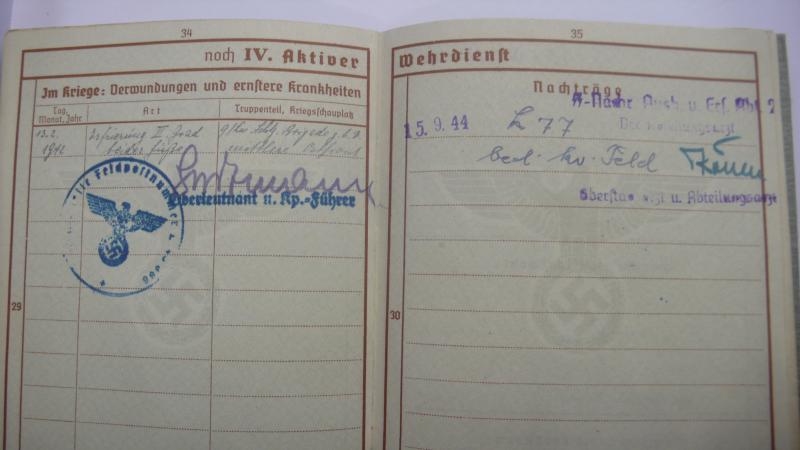 34
noch IV. Aktiver
Im Kriege: Verwundungen und ernstere Krankheiten
Tag, Monat, Jahr
Art
Truppenteil, Kriegsschauplatz
13.2. 1942
Erfrierung II. Grad
beider Füße
mittlere Ostfront
Oberleutnant u. Kp.-Führer
Feldpostnummer
29
35
Wehrdienst
Nachträge
Nachr. Ausb. u. Ers. Abt. 2
15.9.44
77
bed. kv. Feld
Oberstabsarzt u. Abteilungsarzt
30